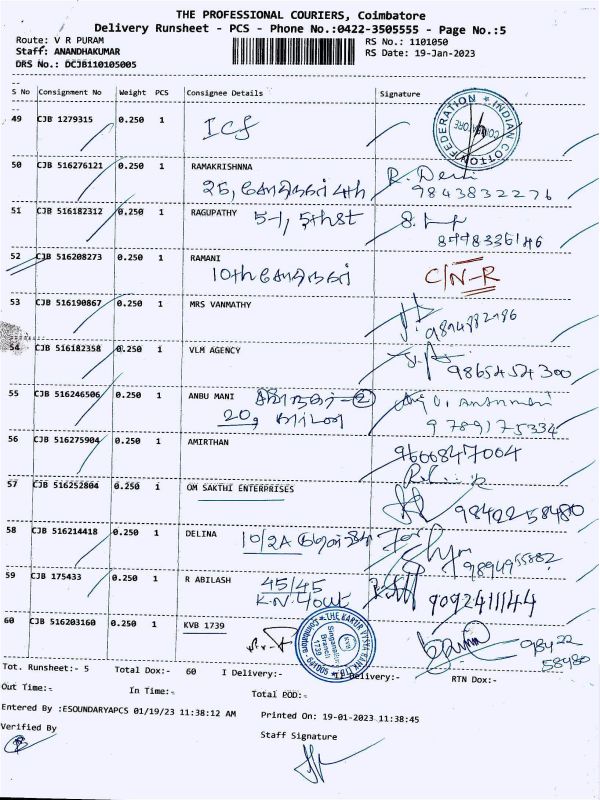 THE PROFESSIONAL COURIERS, Coimbatore
Delivery Runsheet - PCS - Phone No.:0422-3505555 - Page No.:5
Route: V R PURAM
RS No.: 1101050
Staff: ANANDHAKUMAR
RS Date: 19-Jan-2023
DRS No.: DCJB110105005
S No Consignment No Weight PCS Consignee Details Signature
49 CJB 1279315 0.250 1 ICF
INDIAN COTTON FEDERATION
50 CJB 516276121 0.250 1 RAMAKRISHNNA
25, 4th
9843832276
51 CJB 516182312 0.250 1 RAGUPATHY 5-1, 5th st
8998336146
52 CJB 516208273 0.250 1 RAMANI
10th
C/N-R
53 CJB 516190867 0.250 1 MRS VANMATHY
9894782986
54 CJB 516182358 0.250 1 VLM AGENCY
9865454300
55 CJB 516246506 0.250 1 ANBU MANI
20,
9789175334
56 CJB 516275904 0.250 1 AMIRTHAN
9666847064
57 CJB 516252804 0.250 1 OM SAKTHI ENTERPRISES
9842258480
58 CJB 516214418 0.250 1 DELINA 10/2A
9894955882
59 CJB 175433 0.250 1 R ABILASH 45/45
K.N. Yout
9092411144
60 CJB 516203160 0.250 1 KVB 1739
98422
58480
Tot. Runsheet:- 5 Total Dox:- 60 I Delivery:- Delivery:- RTN Dox:-
Out Time:- In Time:- Total POD:-
Entered By :ESOUNDARYAPCS 01/19/23 11:38:12 AM Printed On: 19-01-2023 11:38:45
Verified By Staff Signature